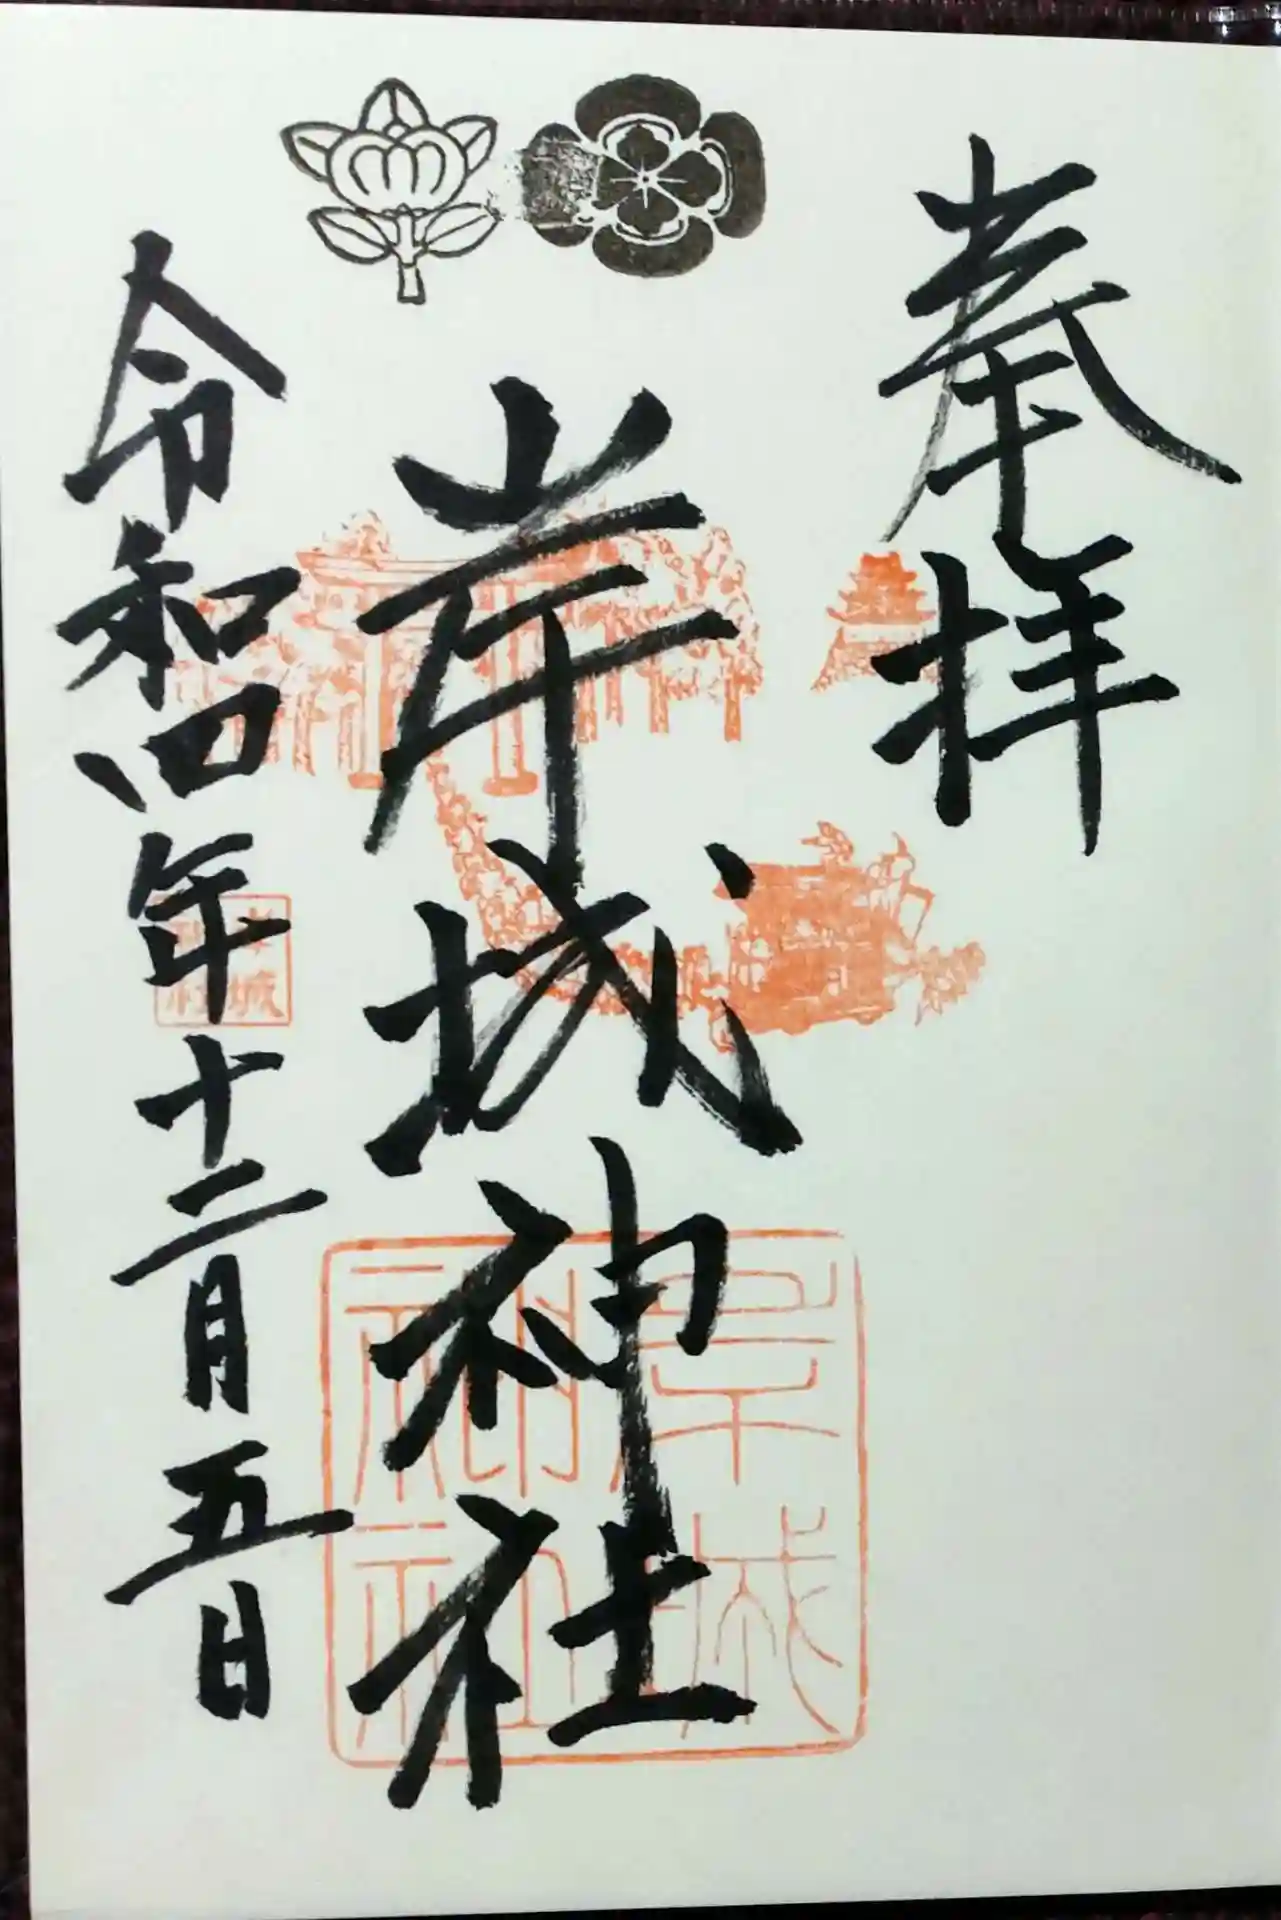 奉拝
岸城神社
令和四年十二月五日
岸城
神社
岸城
神社